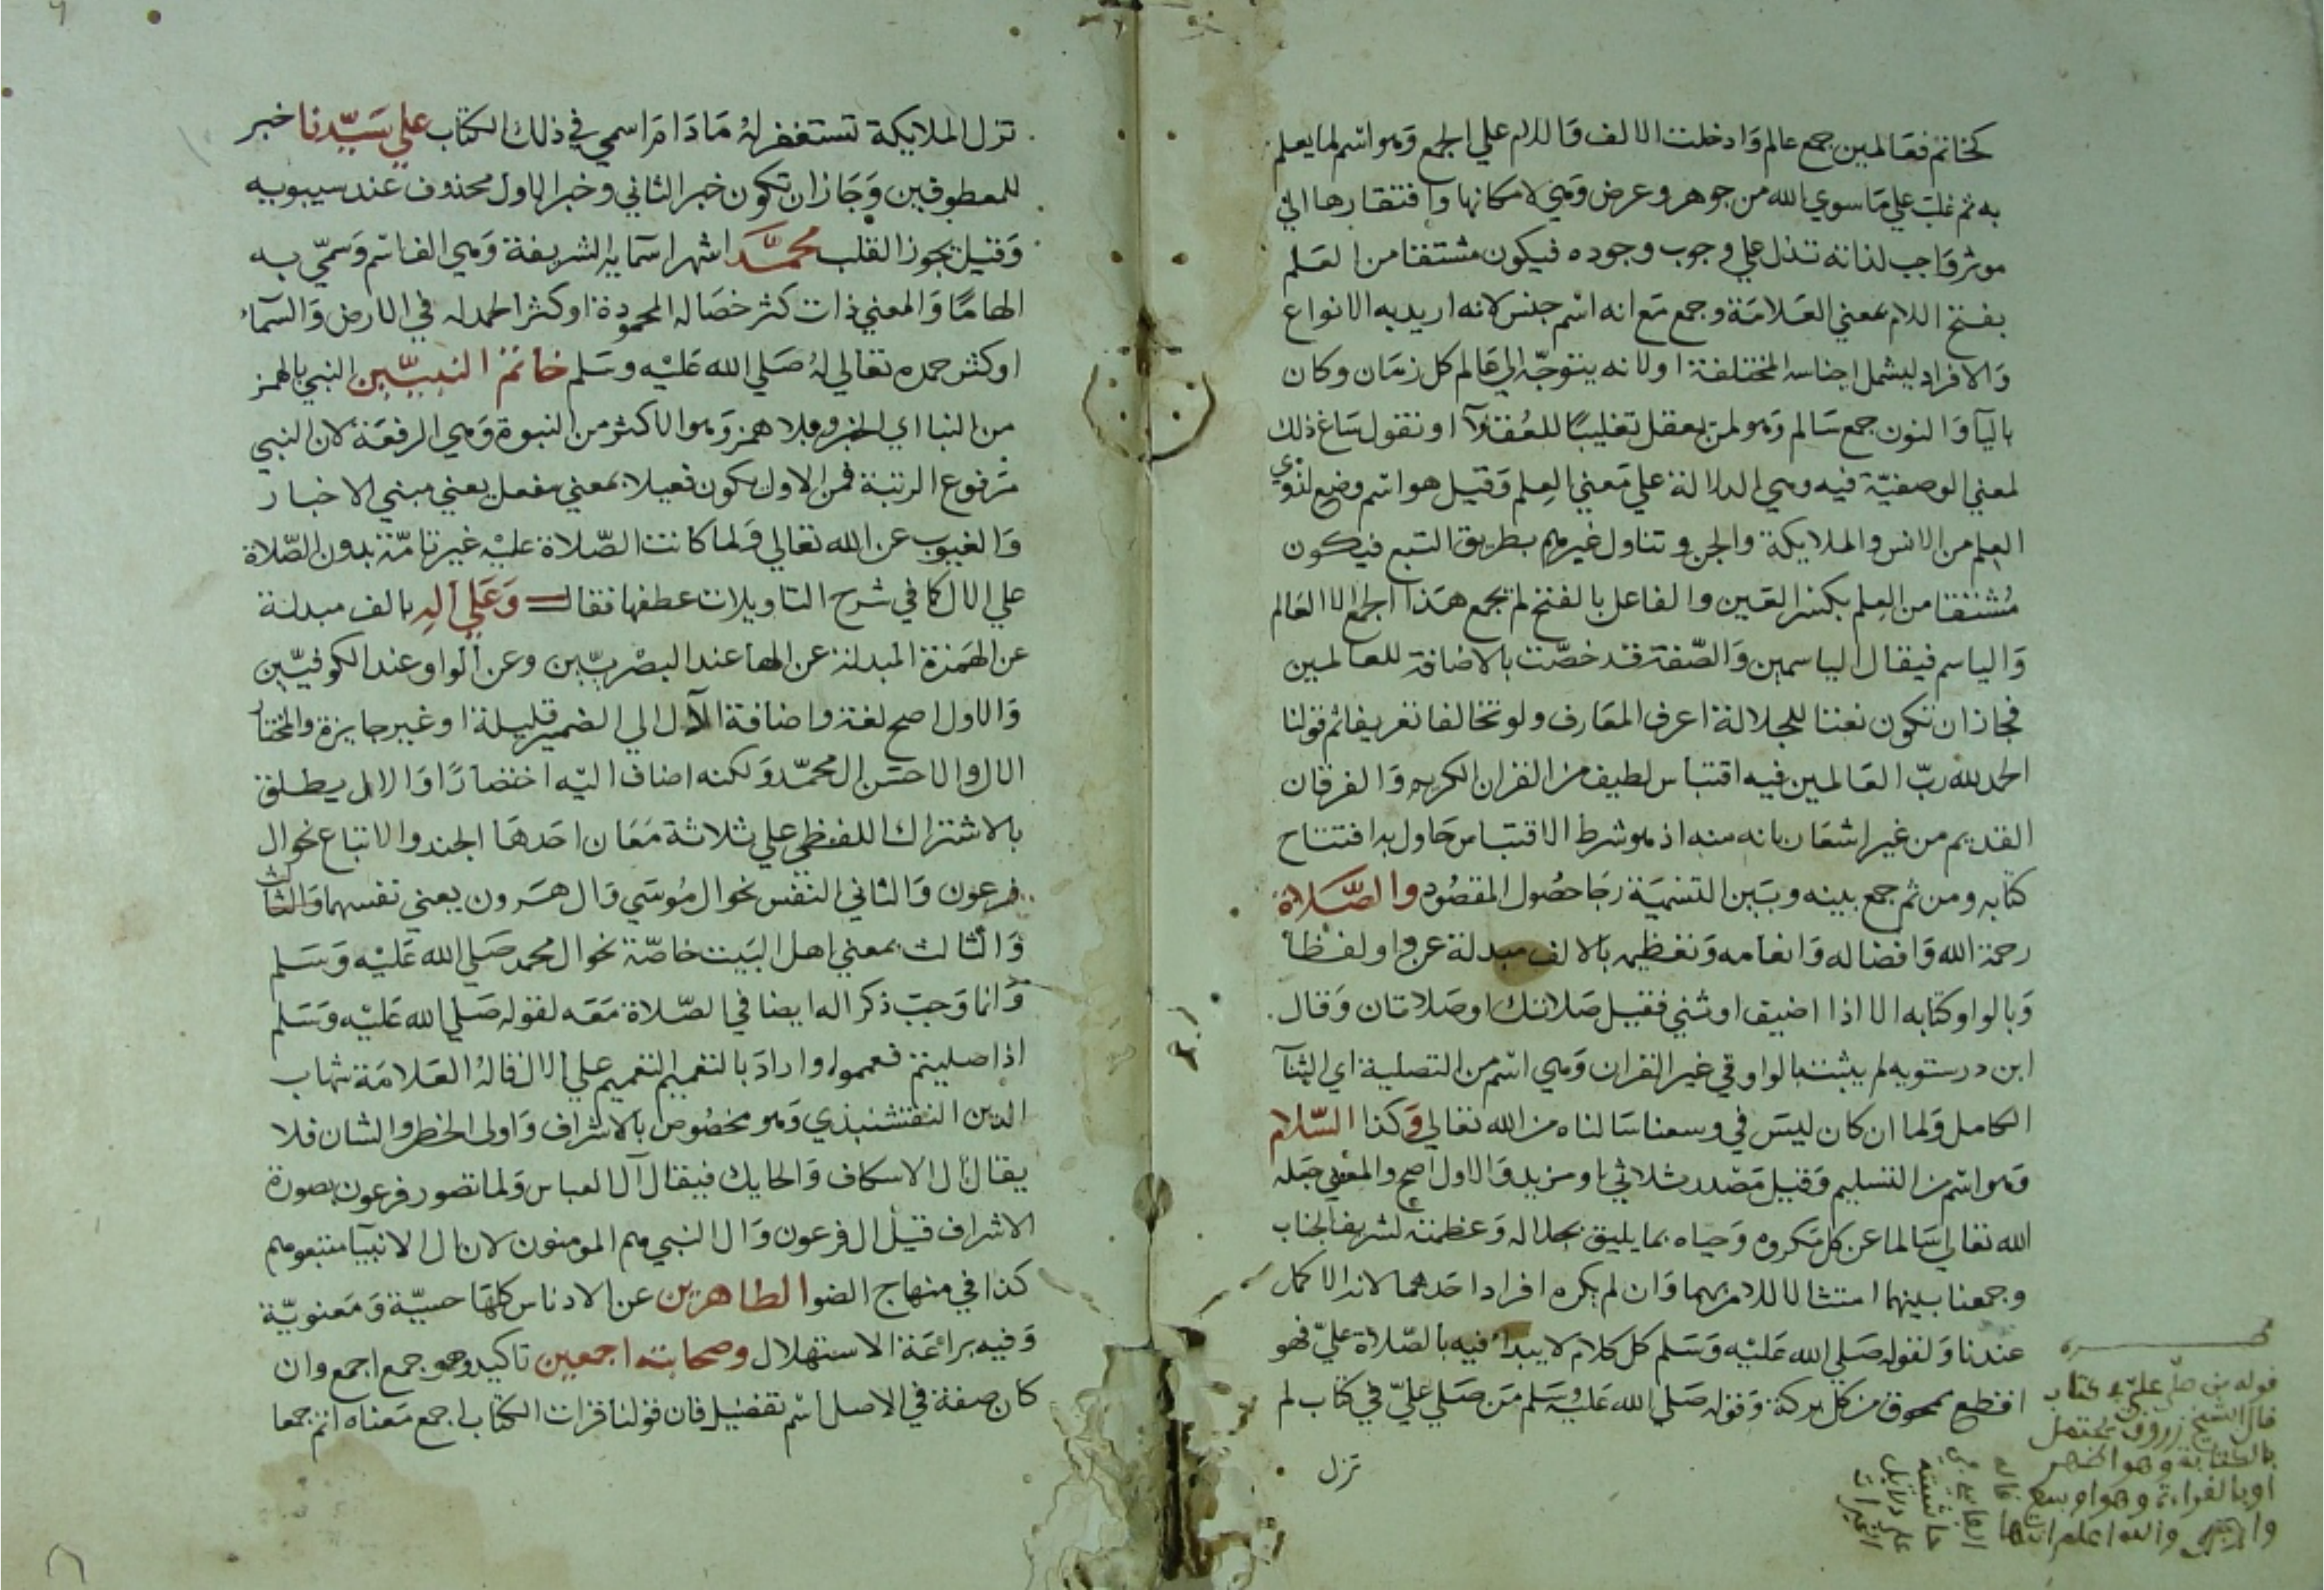 كخاتم فعالمين جمع عالم وادخلت الالف واللام علي الجمع وهو اسم لما يعلم
به ثم غلب علي ما سوي الله من جوهر وعرض وهي لامكانها وافتقارها الي
موثر واجب لذاته تدل علي وجوب وجوده فيكون مشتقا من العلم
بفتح اللام بمعني العلامة وجمع مع انه اسم جنس لانه اريد به الانواع
والافراد ليشمل اجناسه المختلفة او لانه يتوجّه الي عالم كل زمان وكان
باليآ والنون جمع سالم وهو لمن يعقل تغليبًا للعقلآ او نقول ساغ ذلك
لمعني الوصفيّة فيه وهي الدلالة علي معني العلم وقيل هو اسم وضع لذوي
العلم من الانس والملايكة والجن وتناول غيرهم بطريق التبع فيكون
مشتقا من العلم بكسر العين والفاعل بالفتح لم يجمع هذا الجمع الا العالم
والياسم فيقال الياسمين والصّفة قد خصّت بالاضافة للعالمين
فجاز ان تكون نعتا للجلالة اعرف المعارف ولو تخالفا تعريفا ثم قولنا
الحمد لله ربّ العالمين فيه اقتباس لطيف من القران الكريم والفرقان
القديم من غير اشعار بانه منه اذ هو شرط الاقتباس حاول به افتتاح
كتابه ومن ثم جمع بينه وبين التسمية رجا حصول المقصود والصّلاة
رحمة الله وافضاله وانعامه وتعظيمه بالالف مبدلة عن واو لفظا
وبالواو كتابه الا اذا اضيف او ثني فقيل صلاتك او صلاتان وقال
ابن درستويه لم يثبت بالواو في غير القران وهي اسم من التصلية اي الثنآ
الكامل ولما ان كان ليس في وسعنا سالناه من الله تعالي وكذا السّلام
وهو اسم من التسليم وقيل مصدر ثلاثي او مزيد والاول اصح والمعني جعله
الله تعالي سالما عن كل مكروه وحياه بما يليق بجلاله وعظمته لشريف الجناب
وجمعنا بينهما امتثالا للامر بهما وان لم يكره افراد احدهما لانه الاكمل
عندنا ولقوله صلي الله عليه وسلم كل كلام لا يبدأ فيه بالصّلاة عليّ فهو
اقطع ممحوق من كل بركة وقوله صلي الله عليه وسلم من صلي عليّ في كتاب لم
تزل
قوله من صلّي عليّ في كتاب
قال الشيخ زروق يحتمل
بالكتابة وهو اظهر
او بالقراءة وهو اوسع
والله اعلم انتهي
قاله
الفاسي في
حاشيته
علي دلايل
الخيرات
تزل الملايكة تستغفر له ما دام اسمي في ذلك الكتاب علي سيّدنا خبر
للمعطوفين وجاز ان تكون خبر الثاني وخبر الاول محذوف عند سيبويه
وقيل يجوز القلب محمّد اشهر اسمايه الشريفة وهي الف اسم وسمّي به
الهامًا والمعني ذات كثر خصاله المحمودة او كثر الحمد له في الارض والسمآء
او كثر حمده تعالي له صلي الله عليه وسلم خاتم النبيّين النبي بالهمز
من النبا اي الخبر وبلا همز وهو الاكثر من النبوة وهي الرفعة لان النبي
مرفوع الرتبة فمن الاول يكون فعيلا بمعني مفعل يعني مبني الاخبار
والغيوب عن الله تعالي ولما كانت الصّلاة عليه غير تامّة بدون الصّلاة
علي الال كما في شرح التاويلات عطفها فقال وعلي اله بالف مبدلة
عن الهمزة المبدلة عن الهاء عند البصريّين وعن الواو عند الكوفيّين
والاول اصح لغة واضافة الآل الي الضمير قليلة او غير جايزة والمختار
الال والاحسن ال محمّد ولكنه اضاف اليه اختصارًا والال يطلق
بالاشتراك اللفظي علي ثلاثة معان احدها الجند والاتباع نحو ال
فرعون والثاني النفس نحو ال موسي وال هرون يعني نفسهما والثالث
والثالث بمعني اهل البيت خاصّة نحو ال محمد صلي الله عليه وسلم
وانما وجب ذكر اله ايضا في الصّلاة معه لقوله صلي الله عليه وسلم
اذا صليتم فعمموا واراد بالتعميم التعميم علي الال قاله العلامة شهاب
الدين النقشنبذي وهو مخصوص بالاشراف واولي الخطر والشان فلا
يقال ال الاسكاف والحايك فيقال آل العباس ولما تصور فرعون بصورة
الاشراف قيل ال فرعون وال النبي هم المومنون لان ال الانبيا متبعوهم
كذا في منهاج الضو الطاهرين عن الادناس كلها حسيّة ومعنويّة
وفيه براعة الاستهلال وصحابته اجمعين تاكيد وهو جمع اجمع وان
كان صفة في الاصل اسم تفضيل فان قولنا قرات الكتاب اجمع معناه اتم جمعا